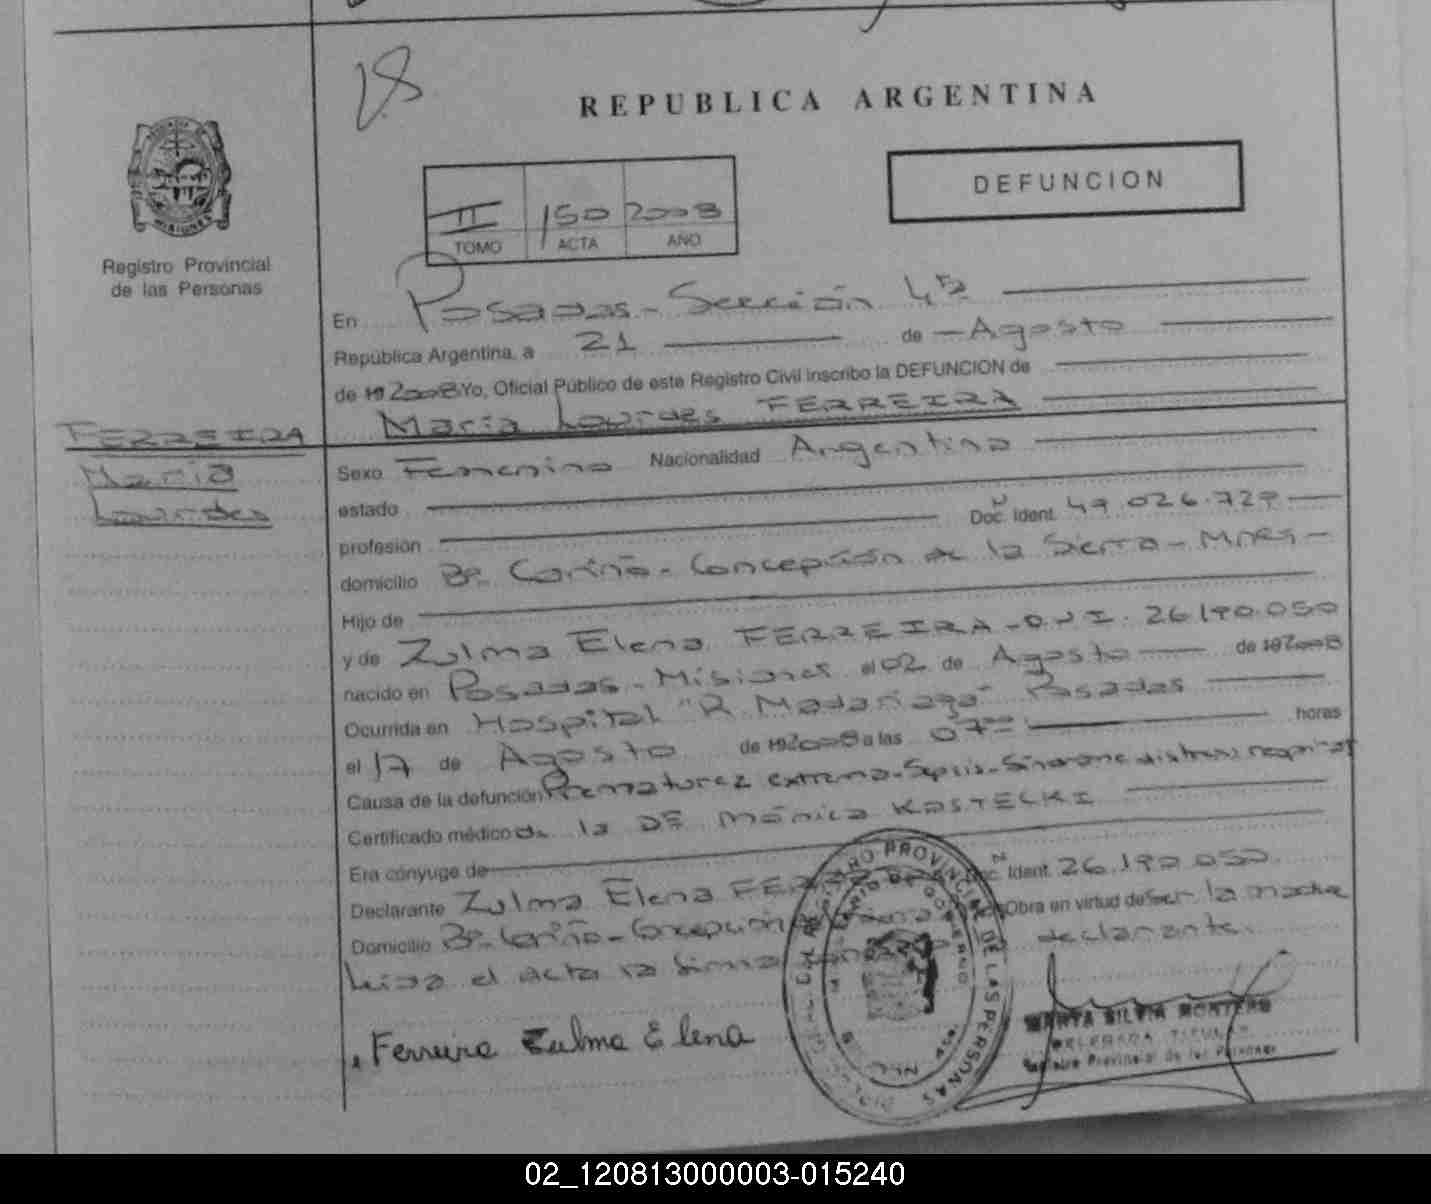 18
REPUBLICA ARGENTINA
DEFUNCION
II 150 2008
TOMO ACTA AÑO
Registro Provincial
de las Personas
En Posadas - Sección 4ª
República Argentina, a 21 de Agosto
de 19 2008 Yo, Oficial Público de este Registro Civil inscribo la DEFUNCION de
Maria Lourdes FERREIRA
FERREIRA
Maria
Lourdes
Sexo Femenino Nacionalidad Argentina
estado
profesión Doc. Ident. 49.026.729
domicilio Bº Cariño - Concepción de la Sierra - Mnes -
Hijo de
y de Zulma Elena FERREIRA - D.N.I. 26.190.050
nacido en Posadas - Misiones el 02 de Agosto de 19 2008
Ocurrida en Hospital "R. Madariaga" Posadas
el 17 de Agosto de 19 2008 a las 07 horas
Causa de la defunción Prematurez extrema - Sepsis - Sindrome
Certificado médico de la DRA Mónica KOSTECKI
Era cónyuge de
Declarante Zulma Elena Doc. Ident. 26.190.050
Domicilio Bº Cariño - Concepción Obra en virtud de ser la madre
Leida el acta la firma declarante.
Ferreira Zulma Elena
REGISTRO PROVINCIAL DE LAS PERSONAS
MARTA SILVIA MONTERO
DELEGADA TITULAR
Registro Provincial de las Personas
02_120813000003-015240